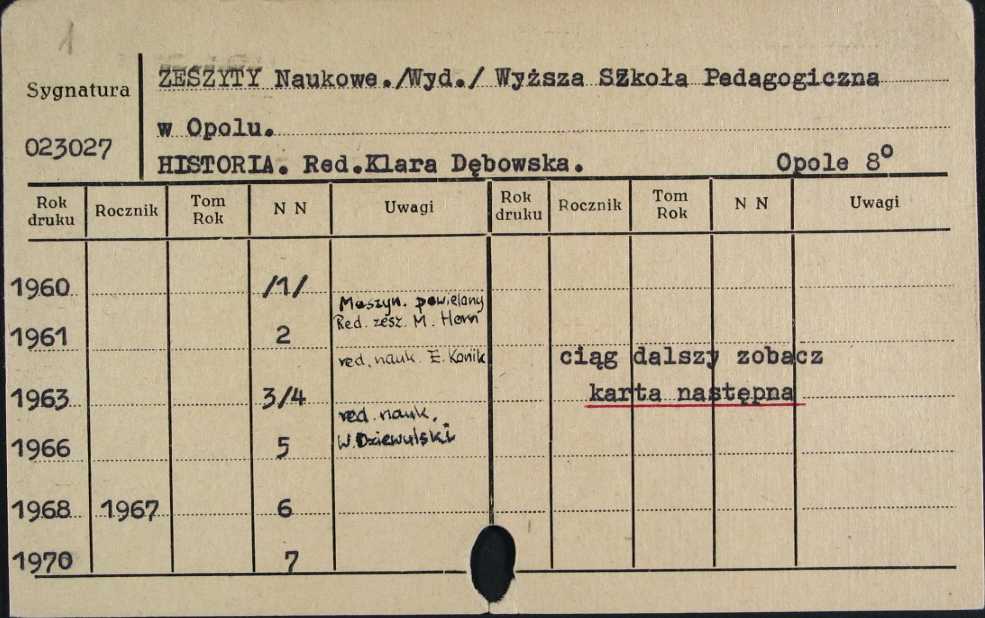 1
ZESZYTY Naukowe./Wyd./ Wyższa SZkoła Pedagogiczna
Sygnatura
w Opolu.
023027
HISTORIA. Red.Klara Dębowska. Opole 8°
Rok druku Rocznik Tom Rok N N Uwagi Rok druku Rocznik Tom Rok N N Uwagi
1960 /1/
Maszyn. powielany
Red. zesz. M. Horn
1961 2
red. nauk. E. Konik
ciąg dalszy zobacz
karta następna
1963 3/4
red. nauk.
W. Dziewulski
1966 5
1968 1967 6
1970 7